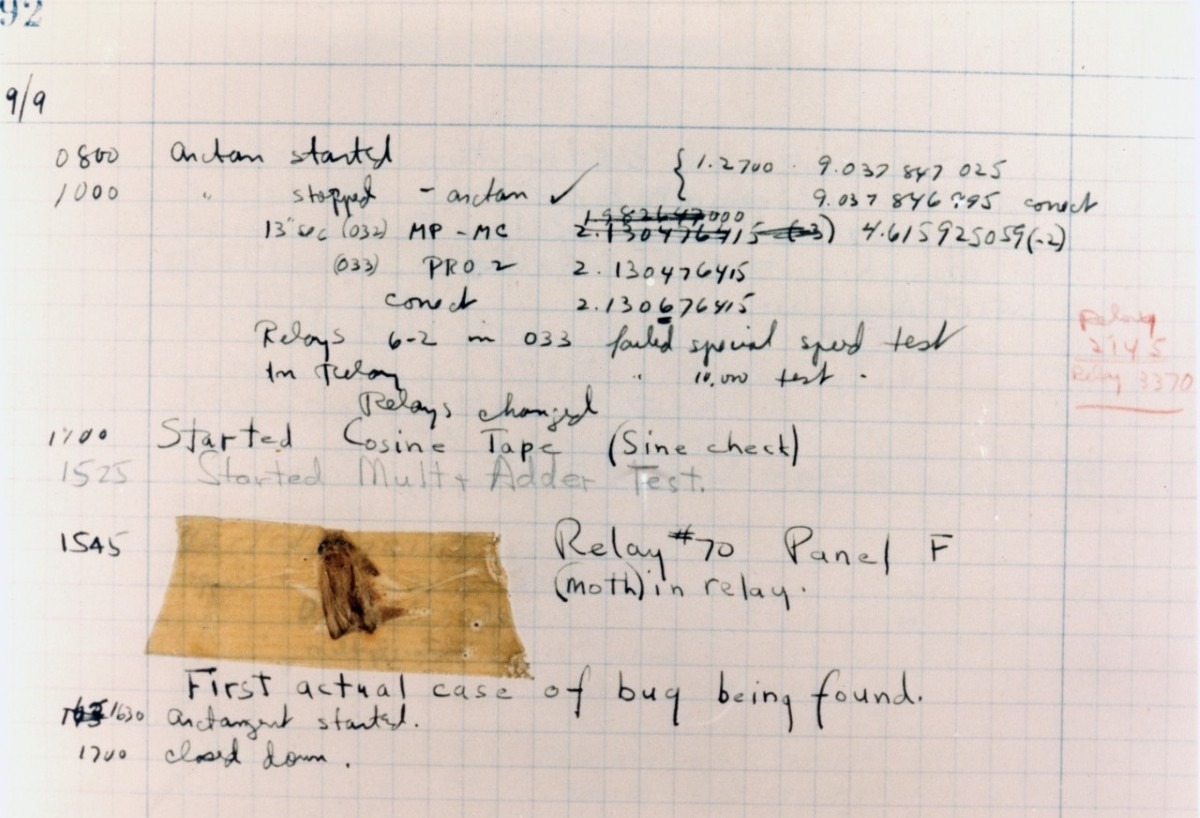 92
9/9
0800 arctan started { 1.2700 · 9.037 847 025
1000 " stopped - arctan ✓ 9.037 846 795 correct
13"sec (032) MP - MC 1.982647000 2.130476415 (-3) 4.615925059(-2)
(033) PRO 2 2.130476415
correct 2.130676415
Relays 6-2 in 033 failed special speed test
In Relay " 10,000 test.
Relay
2145
Relay 3370
Relays changed
1700 Started Cosine Tape (Sine check)
1525 Started Mult+Adder Test.
1545 Relay #70 Panel F
(moth) in relay.
First actual case of bug being found.
1630 arctangent started.
1700 closed down.